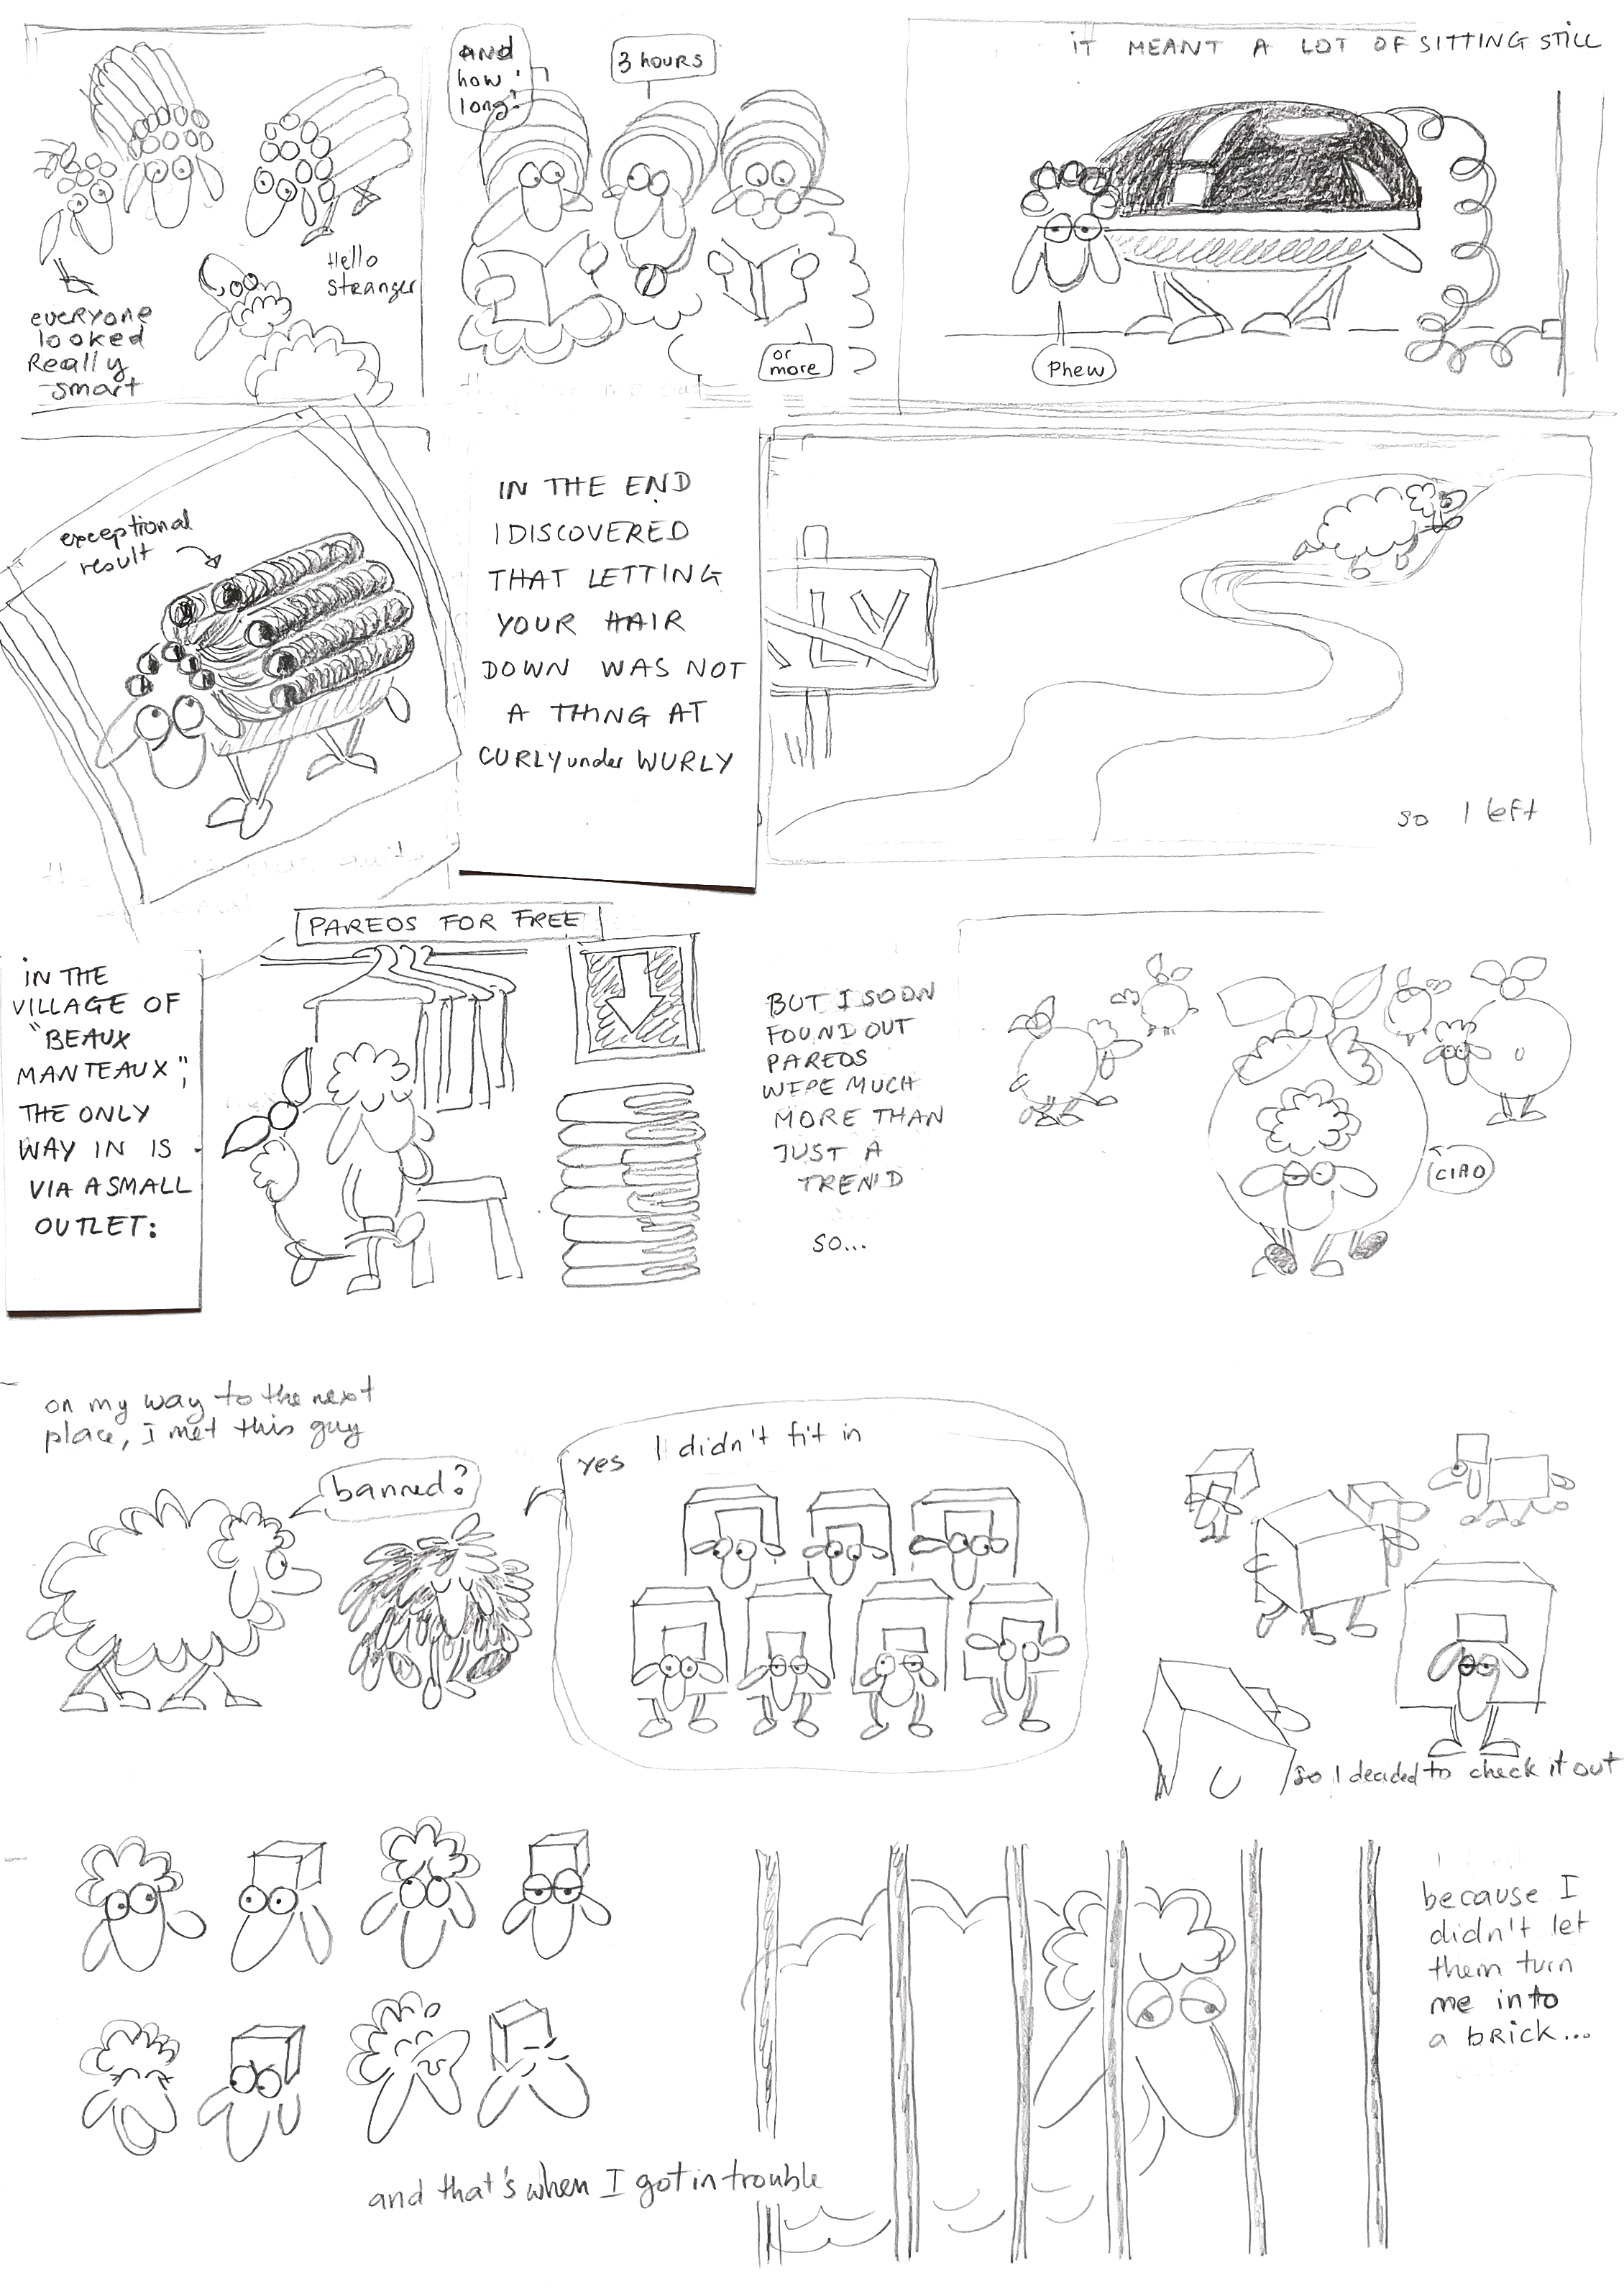 everyone
looked
Really
smart
Hello
stranger
And
how
long?
3 hours
or
more
iT MEANT A LOT OF SITTING STILL
Phew
exceptional
result
IN THE END
I DISCOVERED
THAT LETTING
YOUR HAIR
DOWN WAS NOT
A THING AT
CURLY under WURLY
so I left
PAREOS FOR FREE
iN THE
VILLAGE OF
"BEAUX
MANTEAUX",
THE ONLY
WAY IN IS
VIA A SMALL
OUTLET:
BUT I SOON
FOUND OUT
PAREOS
WERE MUCH
MORE THAN
JUST A
TREND
SO...
CIAO
on my way to the next
place, I met this guy
banned?
yes I didn't fit in
so I decided to check it out
and that's when I got in trouble
because I
didn't let
them turn
me into
a bRick...